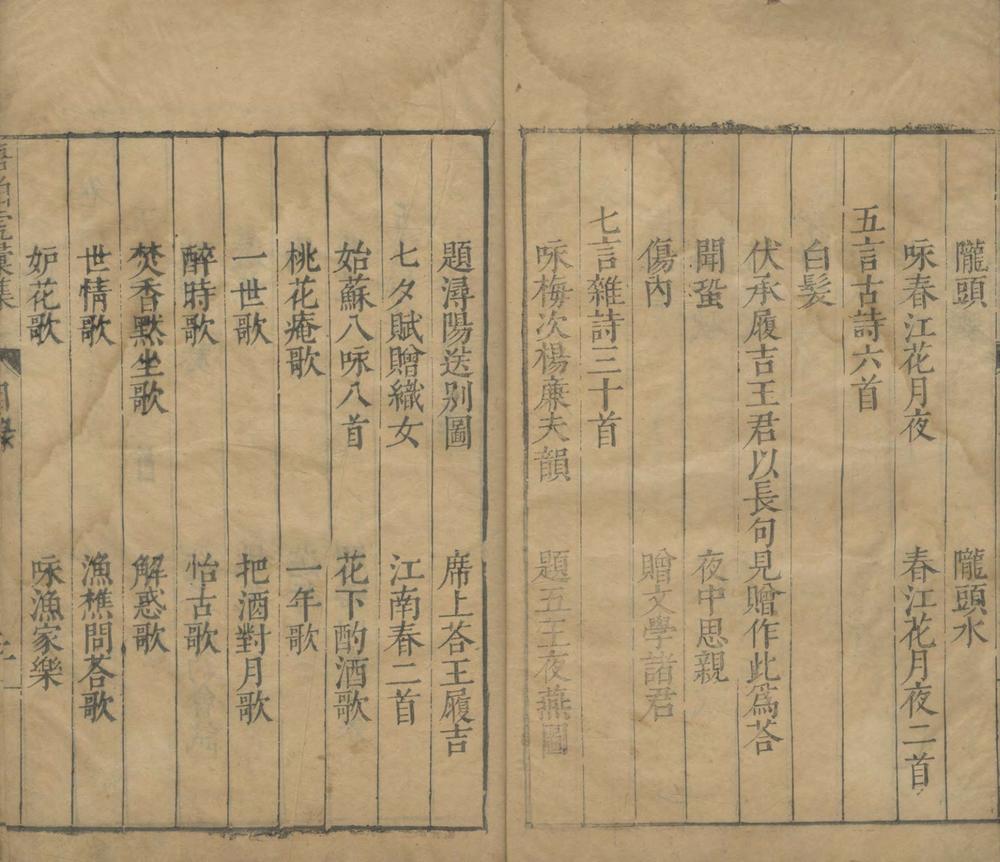 隴頭　隴頭水
咏春江花月夜　春江花月夜二首
五言古詩六首
白髮
伏承履吉王君以長句見贈作此為荅
聞蛩　夜中思親
傷內　贈文學諸君
七言雜詩三十首
咏梅次楊廉夫韻　題五王夜燕圖
題潯陽送別圖　席上荅王履吉
七夕賦贈織女　江南春二首
姑蘇八咏八首　花下酌酒歌
桃花庵歌　一年歌
一世歌　把酒對月歌
醉時歌　怡古歌
焚香默坐歌　解惑歌
世情歌　漁樵問荅歌
妒花歌　咏漁家樂
目錄